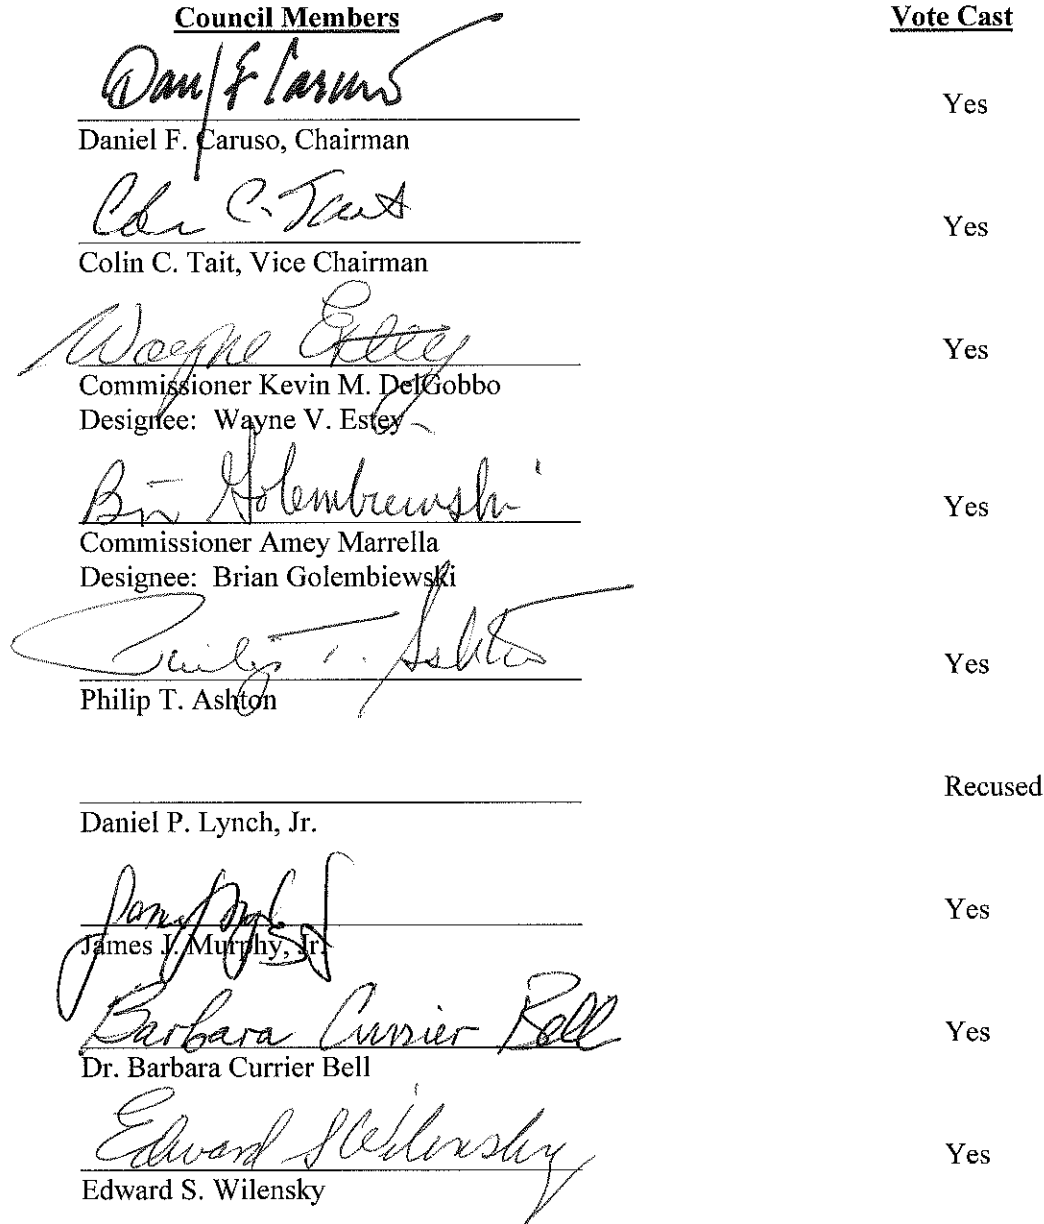 Council Members Vote Cast
Daniel F. Caruso Yes
Daniel F. Caruso, Chairman
Colin C. Tait Yes
Colin C. Tait, Vice Chairman
Wayne Estey Yes
Commissioner Kevin M. DelGobbo
Designee: Wayne V. Estey
Golembiewski Yes
Commissioner Amey Marrella
Designee: Brian Golembiewski
Philip T. Ashton Yes
Philip T. Ashton
Recused
Daniel P. Lynch, Jr.
Yes
James J. Murphy, Jr.
Barbara Currier Bell Yes
Dr. Barbara Currier Bell
Edward S Wilensky Yes
Edward S. Wilensky